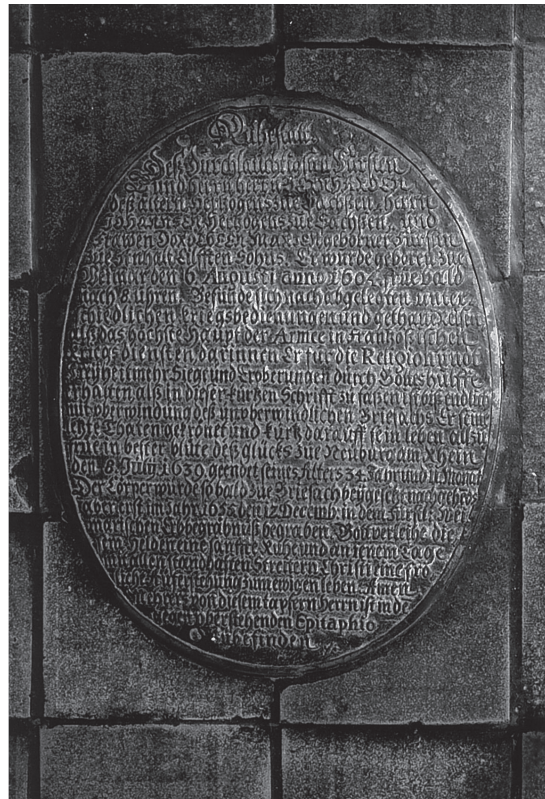 Ruhestatt
Deß Durchlauchtigsten Fürsten
und herrn herrn
deß ältern Hertzogens zu Sachßen, herrn
Johannsen Hertzogens zue Sachßen, und
Frawen Dorotheen Marien geborner Fürstin
zue Anhalt Eilfften Sohns. Er wurde geboren zue
Weimar den 6. Augusti anno 1604. zue bald
nach 8. uhren. Befunde sich nach abgelegten unter-
schiedlichen Kriegsbedienungen und gethan Reisen
das höchste Haupt der Armee in Frantzösischen
Kriegs diensten darinnen Er für die Religion und
Freyheit mehr Siege und Eroberungen durch Gottes hülffe
erhalten alß in dieser kurtzen Schrifft zu faßen ist biß endlich
mit überwindung deß unüberwindlichen Briesachs Er seine
letzte Thaten gekrönet und kurtz darauff sein leben allzu
frue in bester blüte deß glücks zue Neuburg am Rhein
den 8. July 1639 geendet seines Alters 34 Jahr und 11 Monat
Der Cörper wurde so bald zue Briesach beygesetzt nachgehends
aber erst im Jahr 1655 den 12 Decemb. in dem Fürstl. Wei-
marischen Erbbegräbnuß begraben. Gott verleihe die-
sem Helden eine sanffte Ruhe und an jenem Tage
allen standhafften Streitern Christi eine frö-
liche Aufferstehung zum ewigen leben. Amen
von diesem tapfern herrn ist in de
gegen über stehenden Epitaphio
zubefinden